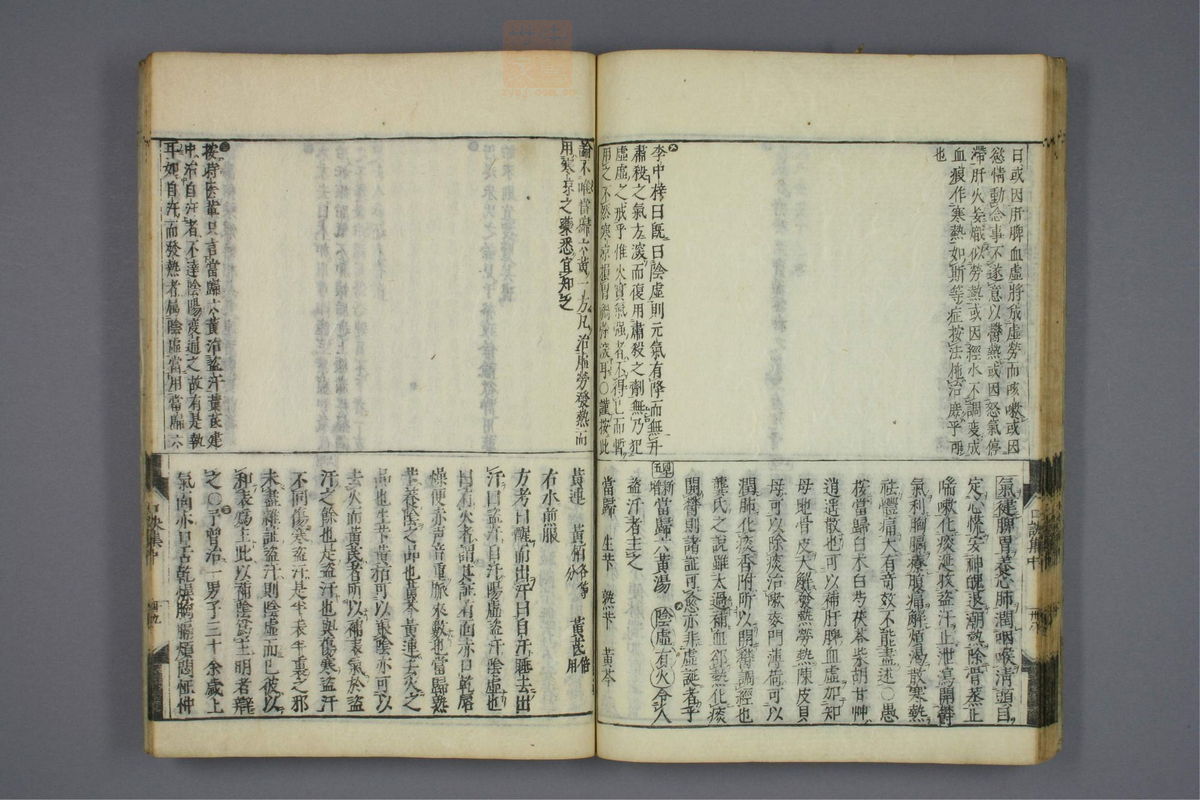 曰或因肝脾血虛將成虛勞而咳嗽或因
慾情動念事不遂意以鬱熱或因怒氣停
滯肝火妄熾似勞熱或因經水不調變成
血瘕作寒熱如斯等症按法施治庶乎可
也
李中梓曰既曰陰虛則元氣有降而無升
肅殺之氣方深而復用肅殺之劑無乃犯
虛虛之戒乎惟火實氣强者不得已而暫
用之不然寒涼損胃 耳○謹按此
氣健脾胃養心肺潤咽喉清頭目
定心慌安神魄退潮熱除骨蒸止
喘嗽化痰涎收盜汗止泄瀉開鬱
氣利胸膈療腹痛解煩渴散寒熱
袪體痛大有奇效不能盡述○愚
按當歸白朮白芍茯苓柴胡甘艸
逍遥散也可以補肝脾血虛加知
母地骨皮大解發熱勞熱陳皮貝
母可以除痰治嗽麥門薄荷可以
潤肺化痰香附所以開鬱調經也
龔氏之說雖太過補血邪熱化痰
開鬱則諸証可愈亦非虛誕者乎
五增當歸六黃湯 陰虛有火令人
盜汗者主之
當歸 生芐 熟芐 黃芩
論不唯當歸六黃一方凡治虛勞發熱而
用寒凉之藥悉宜知之
按時醫輩只言當歸六黃治盜汗黃芪建
中治自汗者不達陰陽變通之故有是執
耳如自汗而發熱者屬陰虛當用當歸六
黃連 黃栢各等分 黃芪倍用
右水煎服
方考曰醒而出汗曰自汗睡去出
汗曰盜汗自汗陽虛盜汗陰虛也
曰有火者謂其証有面赤口乾唇
燥便赤声音重脉來數也當歸熟
芐養陰之品也黃芩黃連去火之
品也生芐黃栢可以養陰亦可以
去火而黃芪者所以補表氣於盜
汗之餘也是盜汗也與傷寒盜汗
不同傷寒盜汗是半表半裏之邪
未盡雜証盜汗則陰虛而已彼以
和表爲主此以補陰爲主明者辨
之○予曾治一男子三十余歲上
氣面赤口舌乾燥胸膈煩悶怔忡